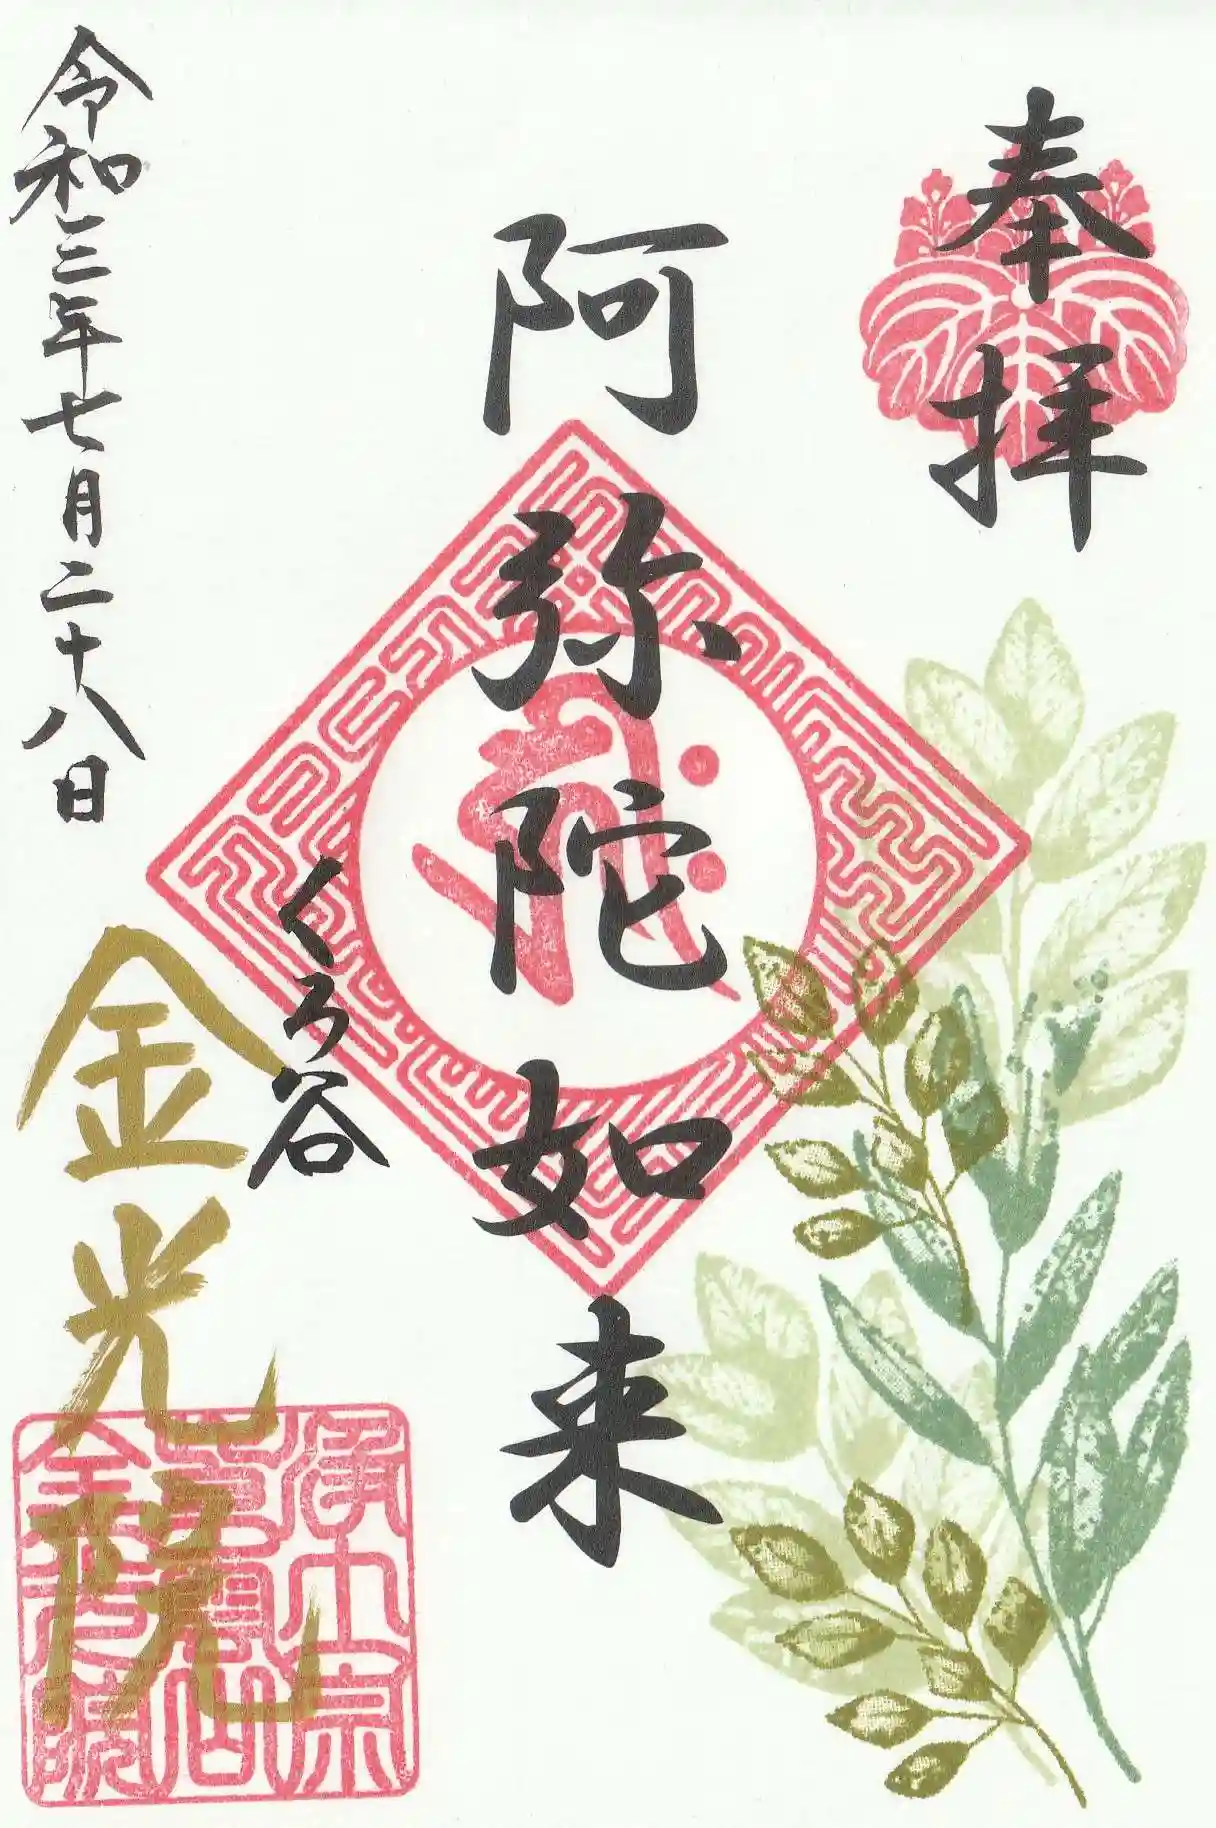 奉拝
阿弥陀如来
くろ谷
令和三年七月二十八日
金光院
浄土宗
金光院